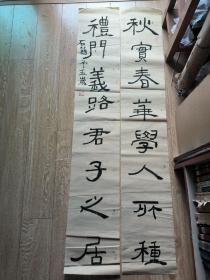 秋實春華學人所種
禮門義路君子之居